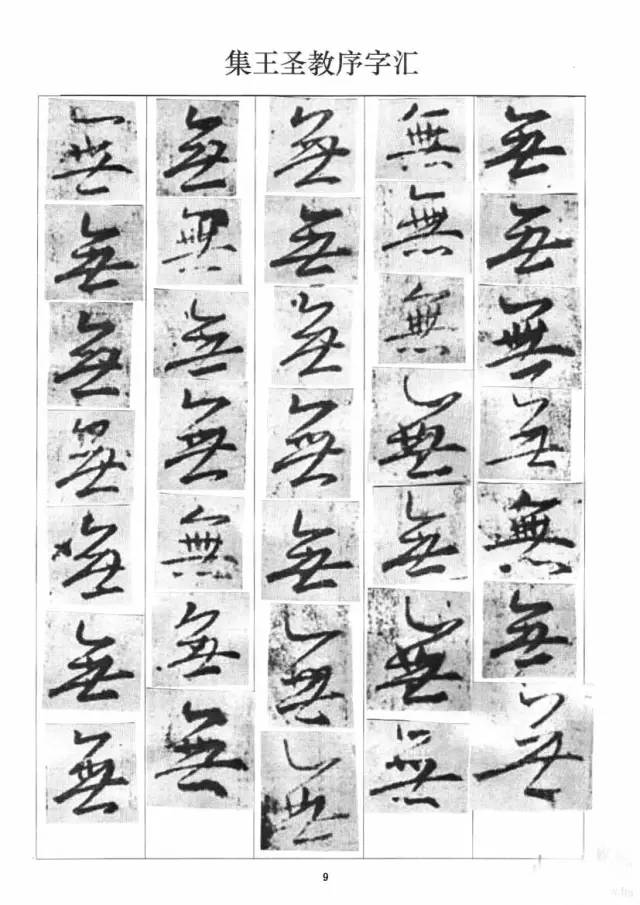 集王圣教序字汇
無 無 無 無 無
無 無 無 無 無
無 無 無 無 無
無 無 無 無 無
無 無 無 無 無
無 無 無 無 無
無 無 無 無 無
9